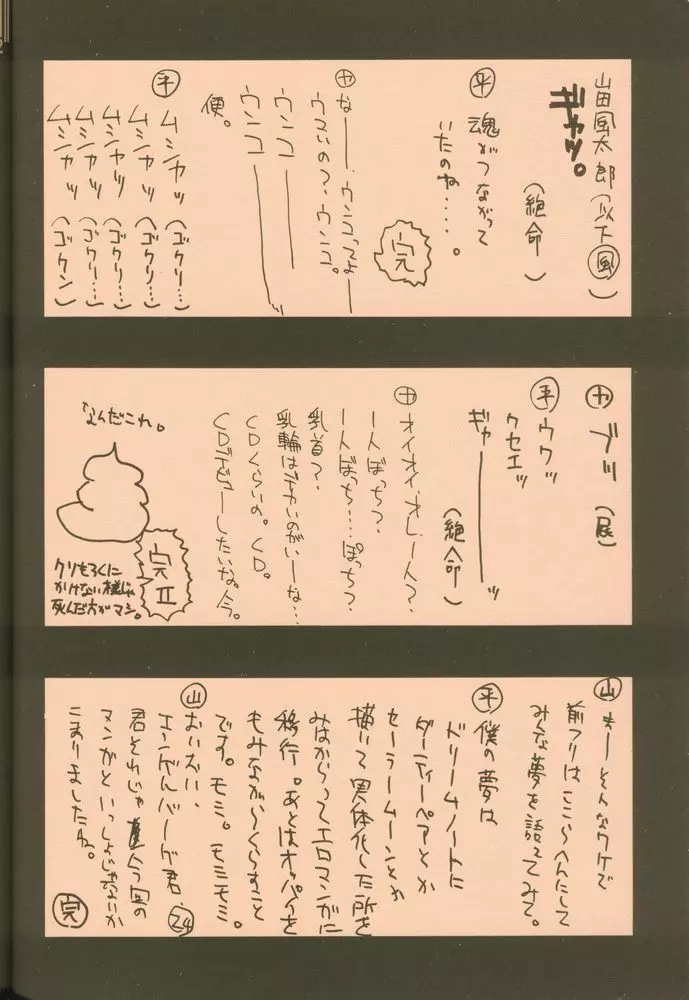 山田風太郎(以下風)
ギャッ。
(絶命)
平
魂がつながって
いたのね・・・・。
完
カ
なー、ウンコってよー
ウマいの?、ウンコ。
ウンコ——
ウンコ——ッ
便。
平
ムシャッ(ゴクリ…)
ムシャッ(ゴクリ…)
ムシャッ(ゴクリ…)
ムシャッ(ゴクリ…)
ムシャッ(ゴクン)
カ ブッ(屁)
平 ウウッ
クセエッ
ギャーーッ
(絶命)
カ
オイオイ、オレ一人?、
一人ぼっち?、
一人ぼっち…ぽっち?、
乳首?、
乳輪はデカいのがいーな…
CDくらいの。CD。
CDデビューしたいな。今。
なんだこれ。
完II
クリもろくに
かけない様じゃ
死んだ方がマシ。
山 まーそんなワケで
前フリはここらへんにして
みんな夢を語ってみて。
平 僕の夢は
ドリームノートに
ダーティーペアとか
セーラームーンとか
描いて実体化した所を
みはからってエロマンガに
移行。あとはオッパイを
もみながらくらすこと
です。モミ。モミモミ。
山 おいおい、
エンゲルバーグ君 24
君それじゃ今回の
マンガといっしょじゃないか
こまりましたね。
完